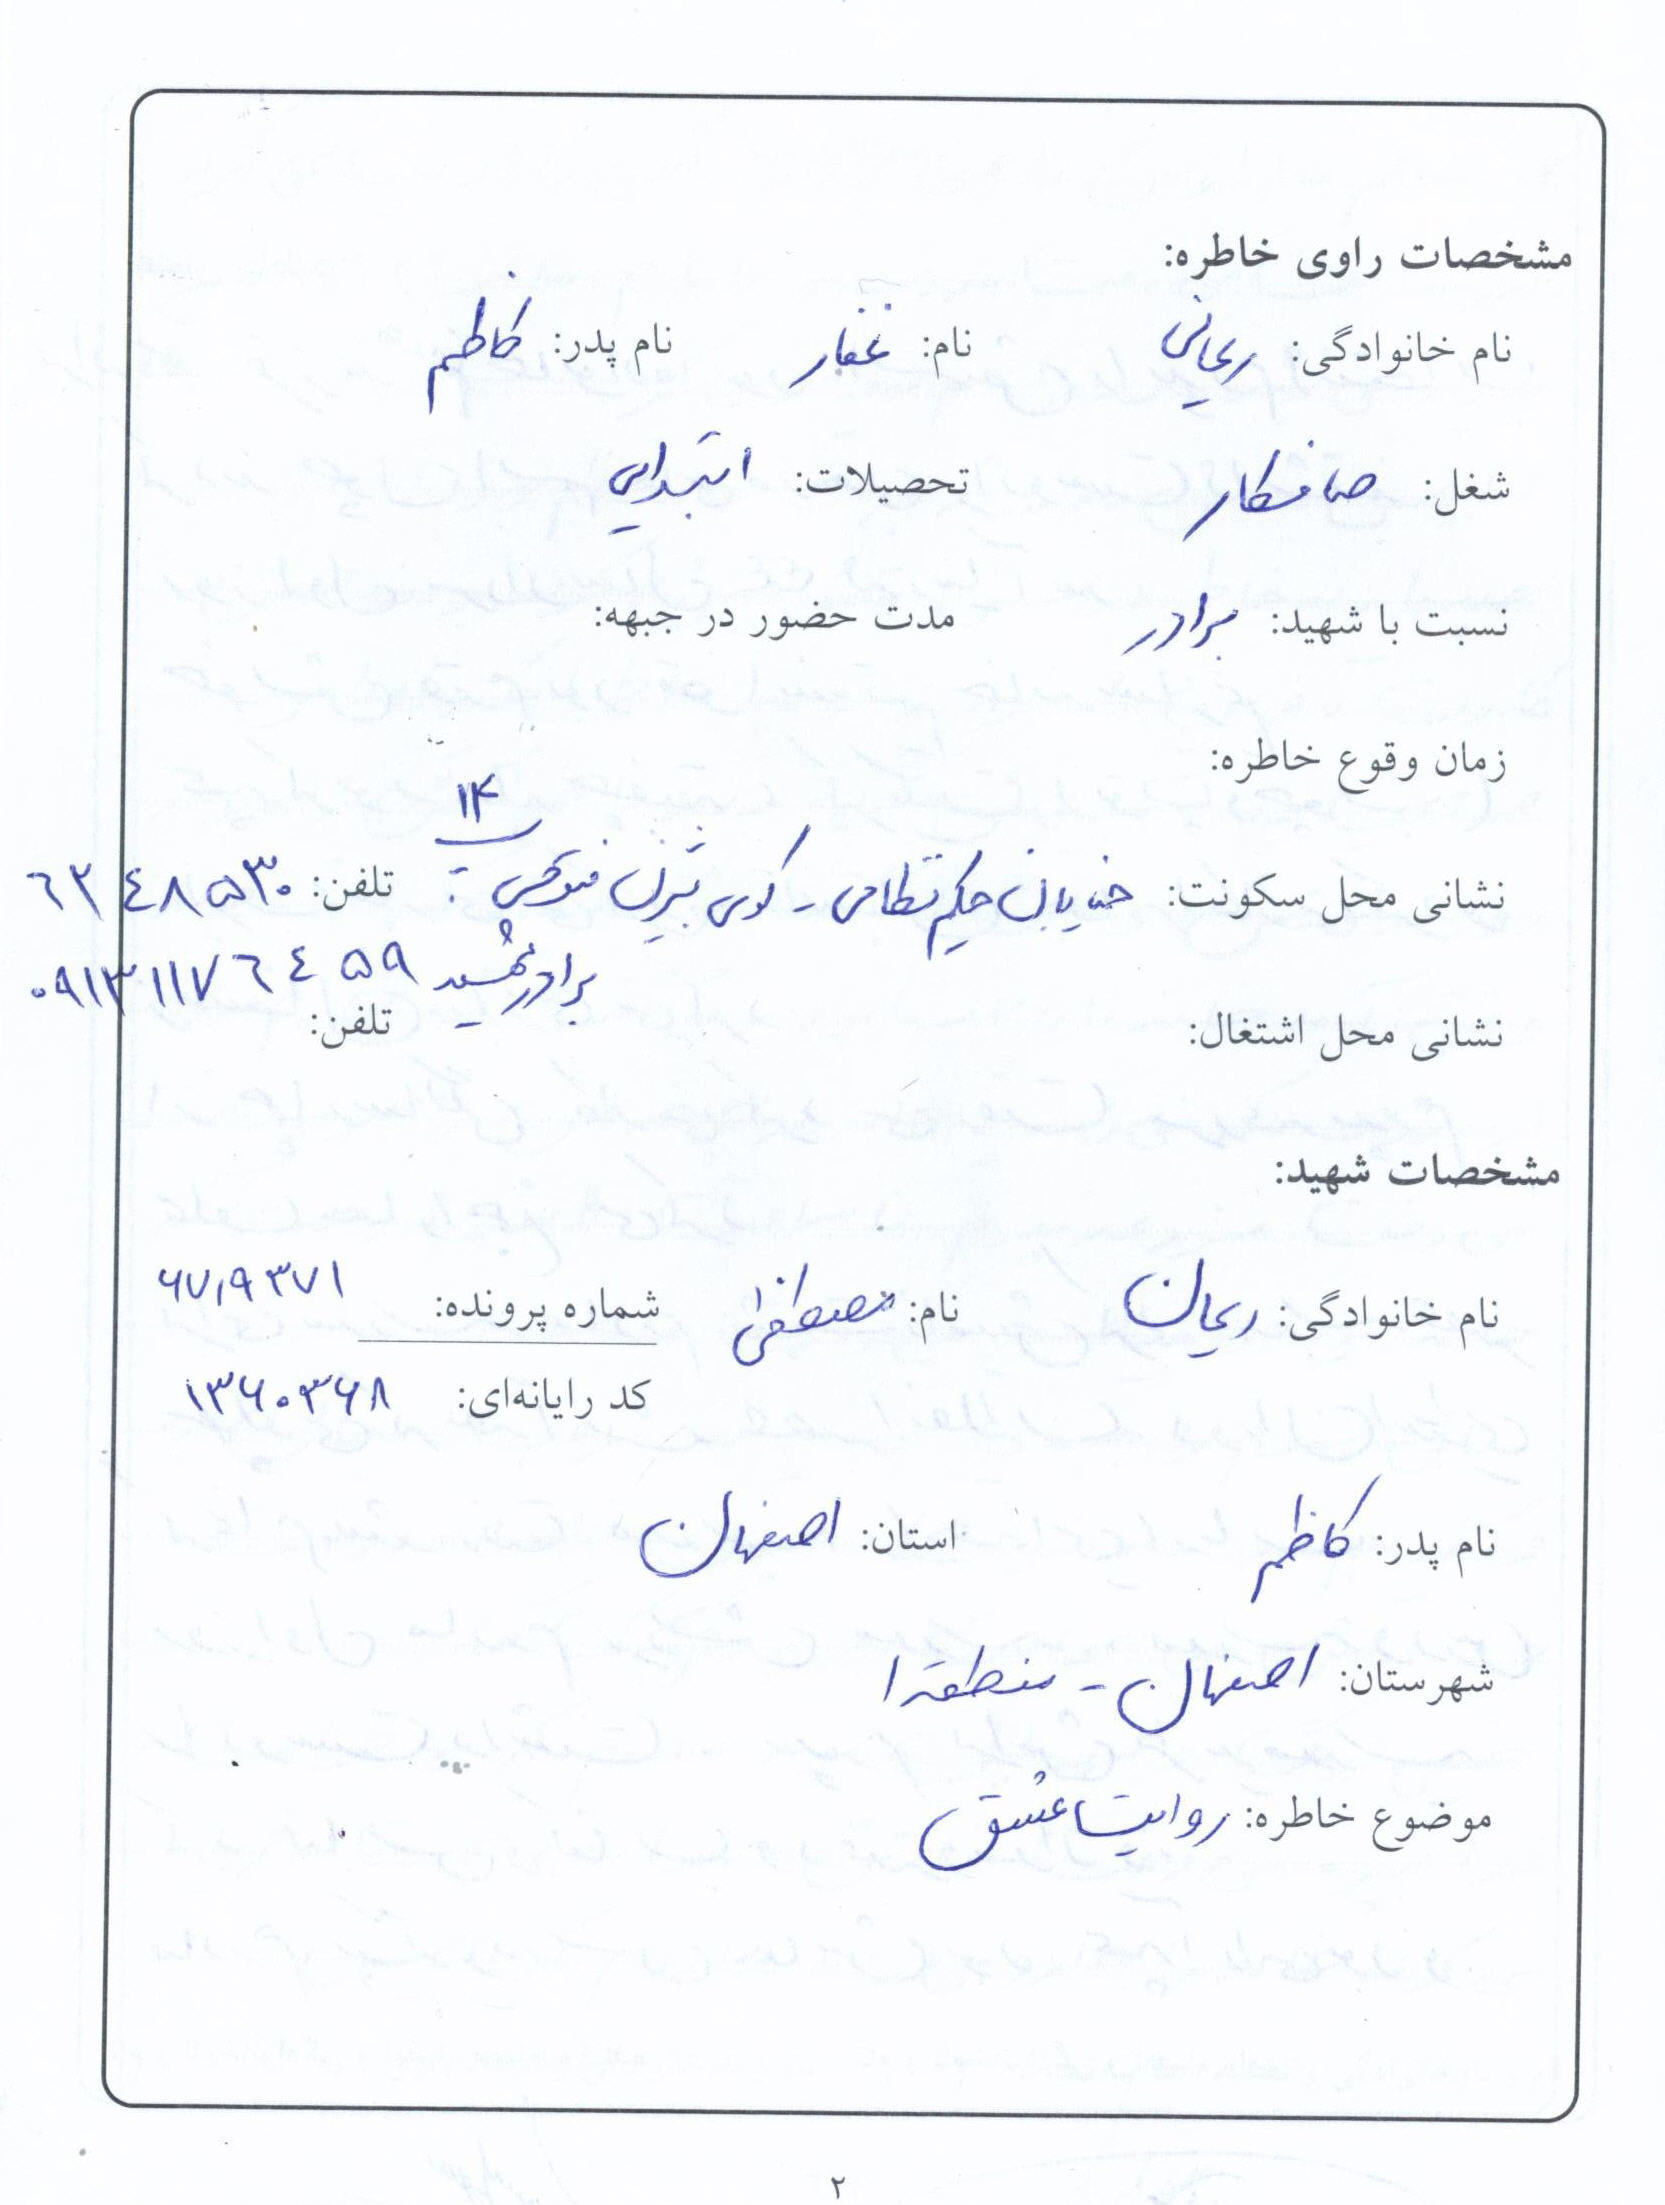 مشخصات راوی خاطره:
نام خانوادگی: ریحانی نام: غفار نام پدر: کاظم
شغل: صافکار تحصیلات: ابتدایی
نسبت با شهید: برادر مدت حضور در جبهه:
زمان وقوع خاطره:
۱۴
نشانی محل سکونت: خیابان حکیم نظامی - کوی پ تلفن: ۶۲۴۸۵۳۰
برادر شهید ۰۹۱۳۱۱۷۶۴۵۹
نشانی محل اشتغال: تلفن:
مشخصات شهید:
نام خانوادگی: ریحانی نام: مصطفی شماره پرونده: ۶۷۱۹۳۷۱
کد رایانه‌ای: ۱۳۶۰۳۶۸
نام پدر: کاظم استان: اصفهان
شهرستان: اصفهان - منطقه ۱
موضوع خاطره: روایت عشق
۲